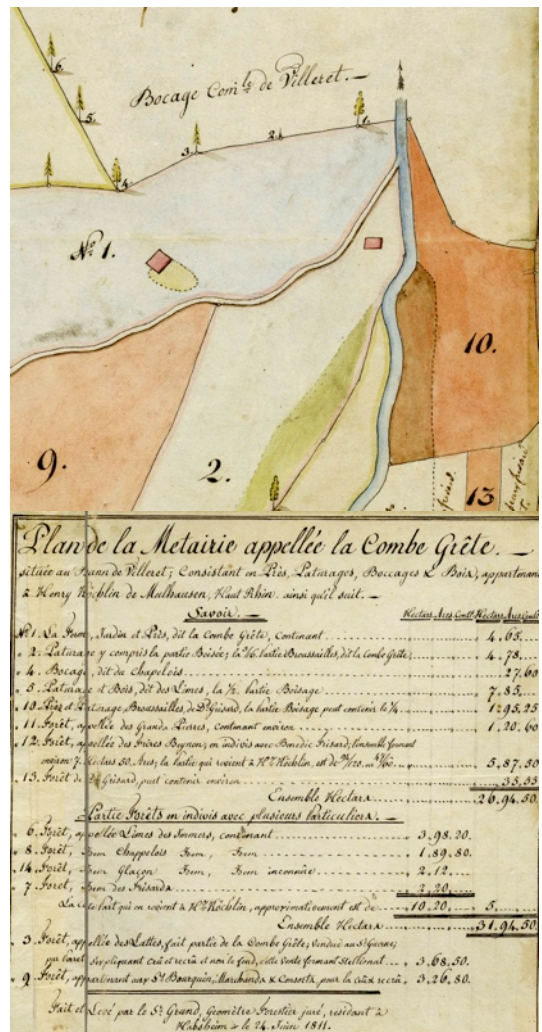 Bocage Com.le de Villeret. —
6.
5.
4.
3.
2.
1.
N.o 1.
10.
9.
2.
13
Plan de la Metairie appellée la Combe Grête. —
située au Bann de Villeret; Consistant en Près, Paturages, Boccages & Bois, appartenant
à Henry Köchlin de Mulhausen, Haut Rhin. ainsi qu'il suit. —
Savoir. —
Hectars Ares Cent. Hectars Ares Cent.
N.o 1. La Ferme, Jardin et Près, dit la Combe Grête, Contenant 4. 65.
" 2. Paturage y compris la partie Boisée; la 2/6 partie Broussailles, dit la Combe Grête 4. 78.
" 4. Bocage, dit du Chapelois 27. 60
" 5. Paturage et Bois, dit des Limes, la 1/2 partie Boisage 7. 85.
" 10. Près et Paturage, Broussailles, de Grisard, la partie Boisage peut contenir le 1/4 1 95. 25
" 11. Forêt, appellée des Grands Pierres, contenant environ 1. 20. 60
" 12. Forêt, appellée des Frères Beynon; en indivis avec Benedic Frisard; l'ensemble formant
environ 7. Hectars 50. Ares; la partie qui revient à H.ry Köchlin, est de 5. 87. 50
" 13. Forêt de Grisard, peut contenir environ 35. 55
Ensemble Hectars 26. 94. 50
Partie Forêts en indivis avec plusieurs particuliers. —
" 6. Forêt, appellée Limes des Immers, contenant " 3. 98. 20.
" 8. Forêt, Item Chappelois Item, Item " 1. 89. 80.
" 14. Forêt, Item Glaçon Item, Item inconnüe " 2. 12.
" 7. Forêt, Item des Frisards " 2. 20.
La part qui en revient à H.ry Köchlin, approximativement est de " 10. 20 " 5.
Ensemble Hectars 31. 94. 50.
" 3. Forêt, appellée des Lattes, fait partie de la Combe Grête; vendue au
par expliquant crû et recrû et non le fond, cette vente formant " 3. 68. 50.
" 9. Forêt, appartenant aux S.rs Bourquin, Marchands & Consorts pour la crüe recrû " 3. 26. 80.
Fait et Levé par le S.r Grand, Geomètre Forestier juré, résidant à
Habsheim le 24. 1811.